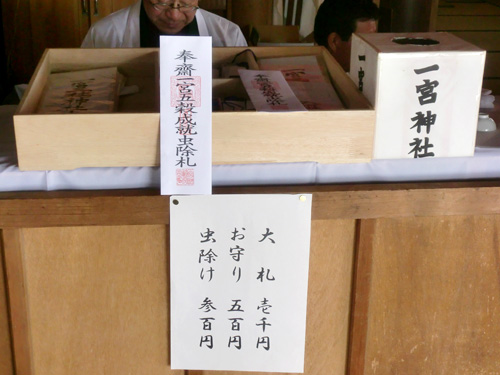 奉齋一宮五穀成就虫除札
一宮神社
大札 壱千円
お守り 五百円
虫除け 参百円